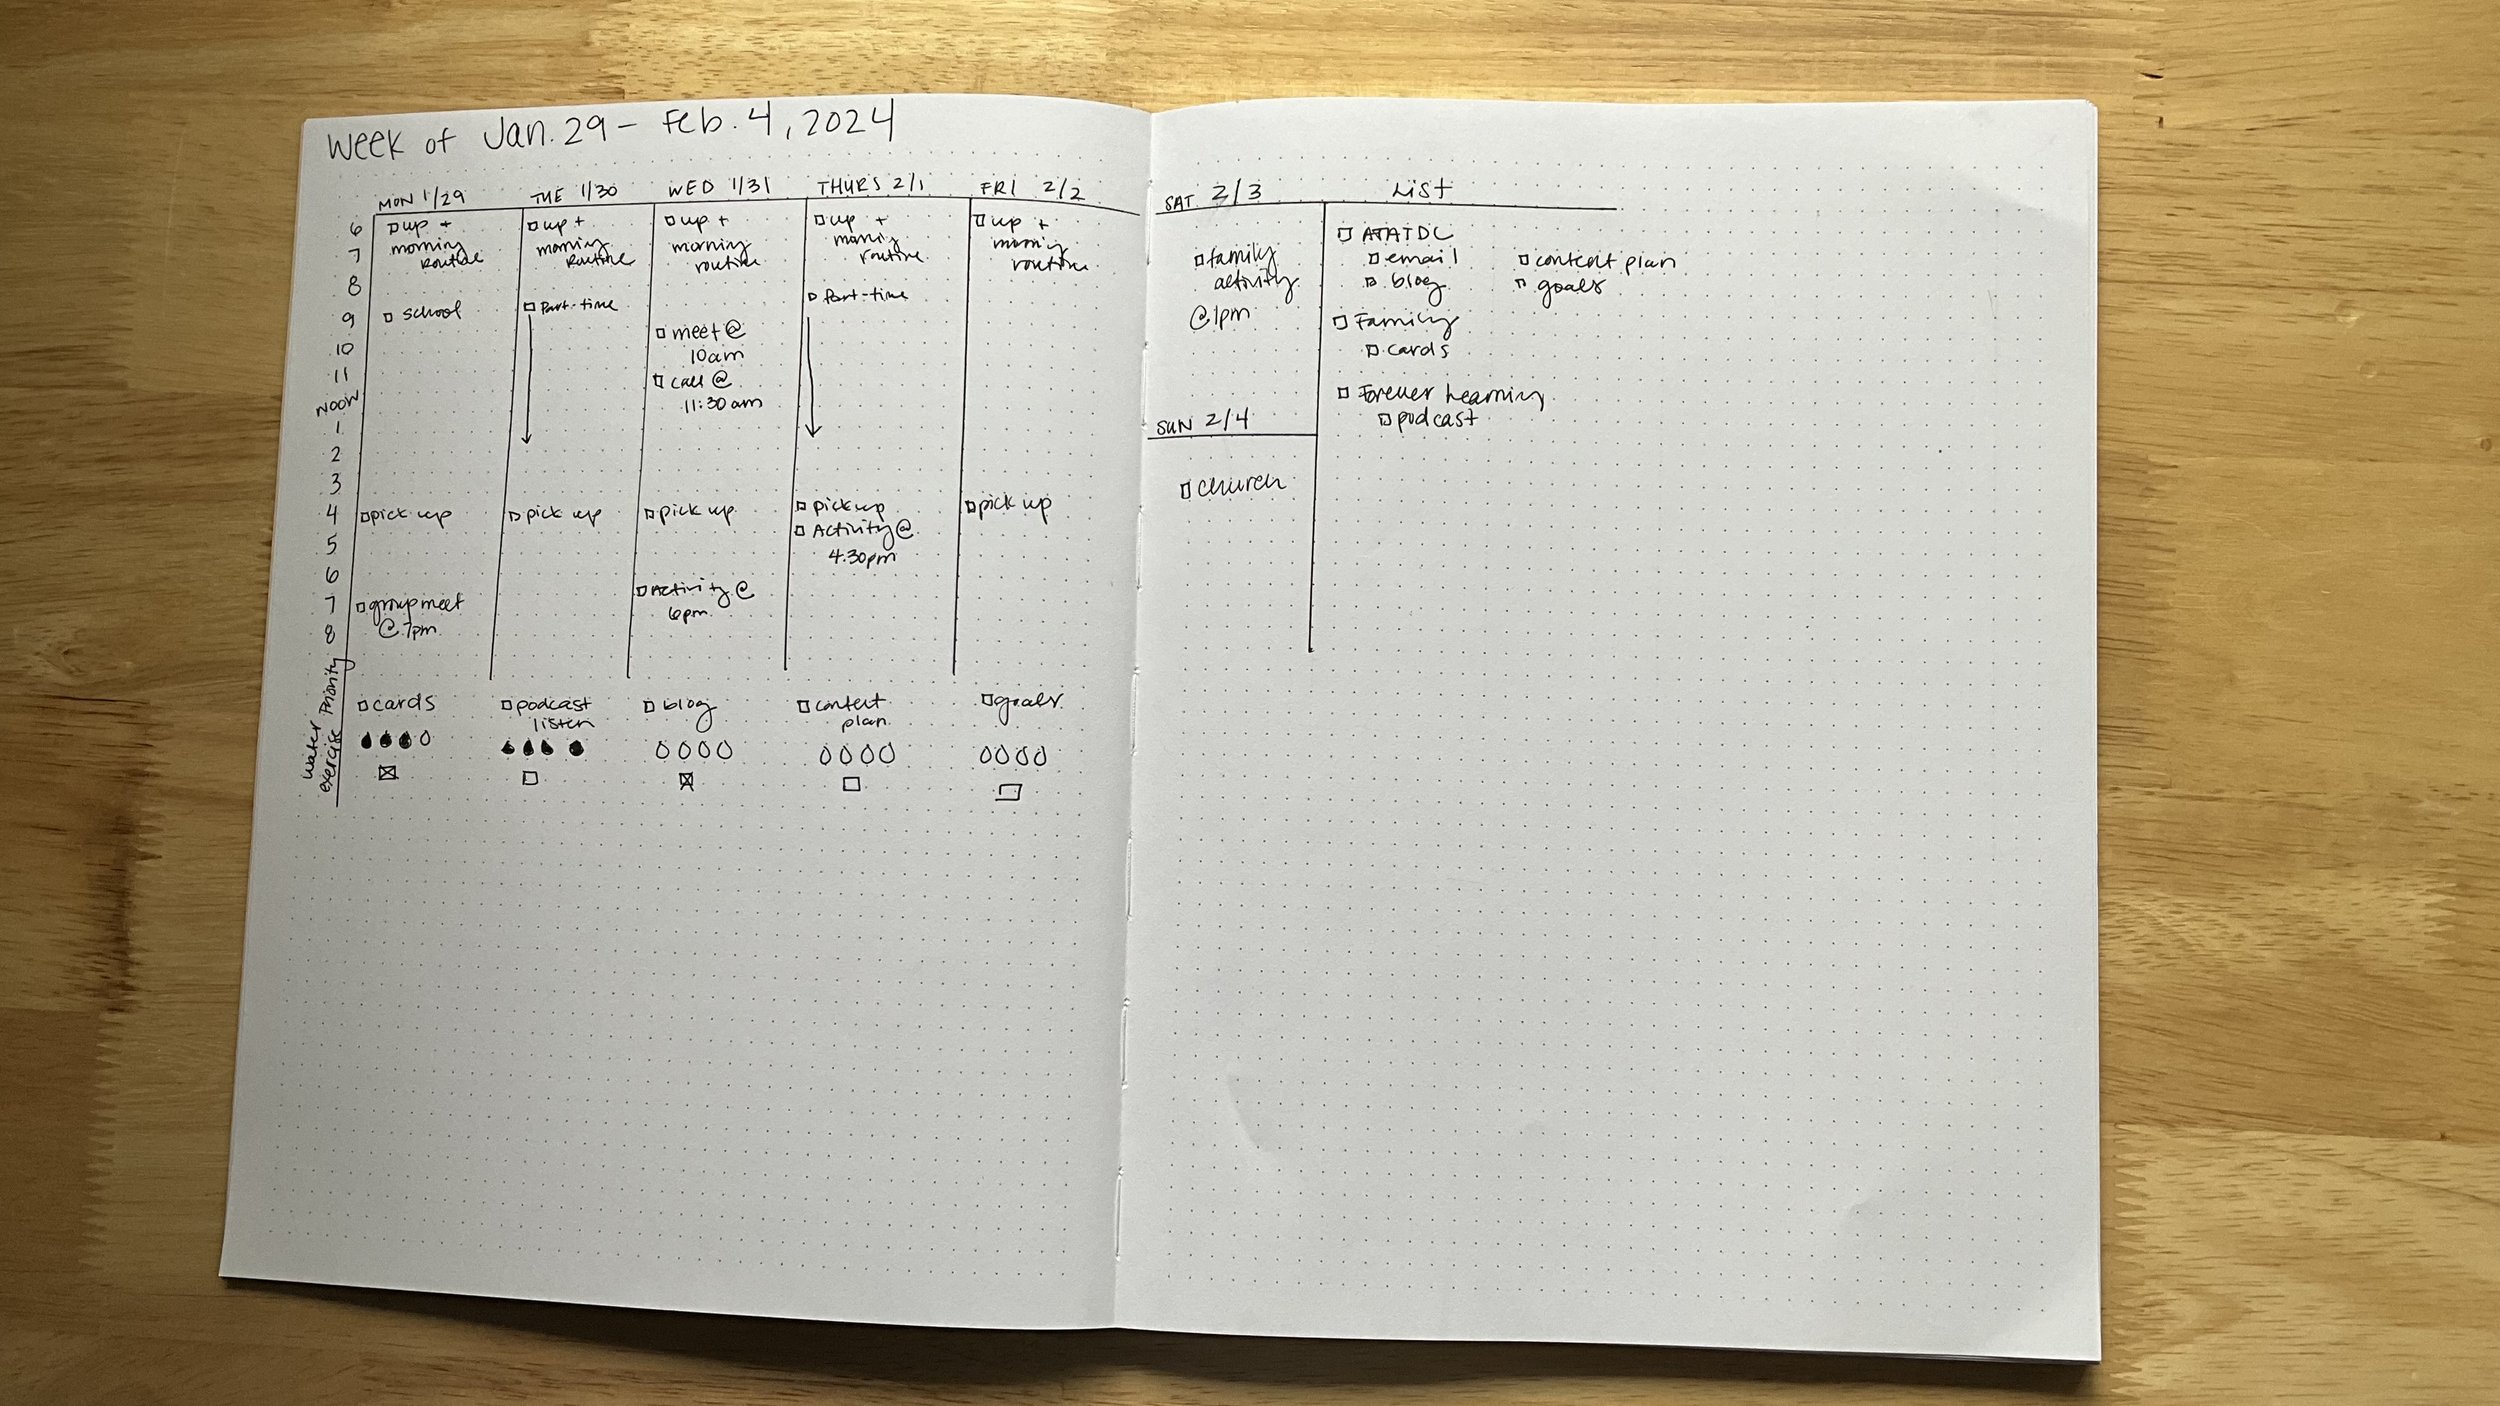 Week of Jan. 29 - Feb. 4, 2024
MON 1/29
up +
morning
routine
school
pick up
group meet
@ 7pm
cards
TUE 1/30
up +
morning
routine
Part-time
pick up
podcast
listen
WED 1/31
up +
morning
routine
meet @
10am
call @
11:30 am
pick up
Activity @
6pm
blog
THURS 2/1
up +
morning
routine
Part-time
pick up
Activity @
4:30pm
content
plan
FRI 2/2
up +
morning
routine
pick up
goals
6
7
8
9
10
11
NOON
1
2
3
4
5
6
7
8
Priority
Water
exercise
SAT 2/3
family
activity
@ 1pm
SUN 2/4
church
List
ATATDC
email
blog
content plan
goals
Family
cards
Forever Learning
podcast